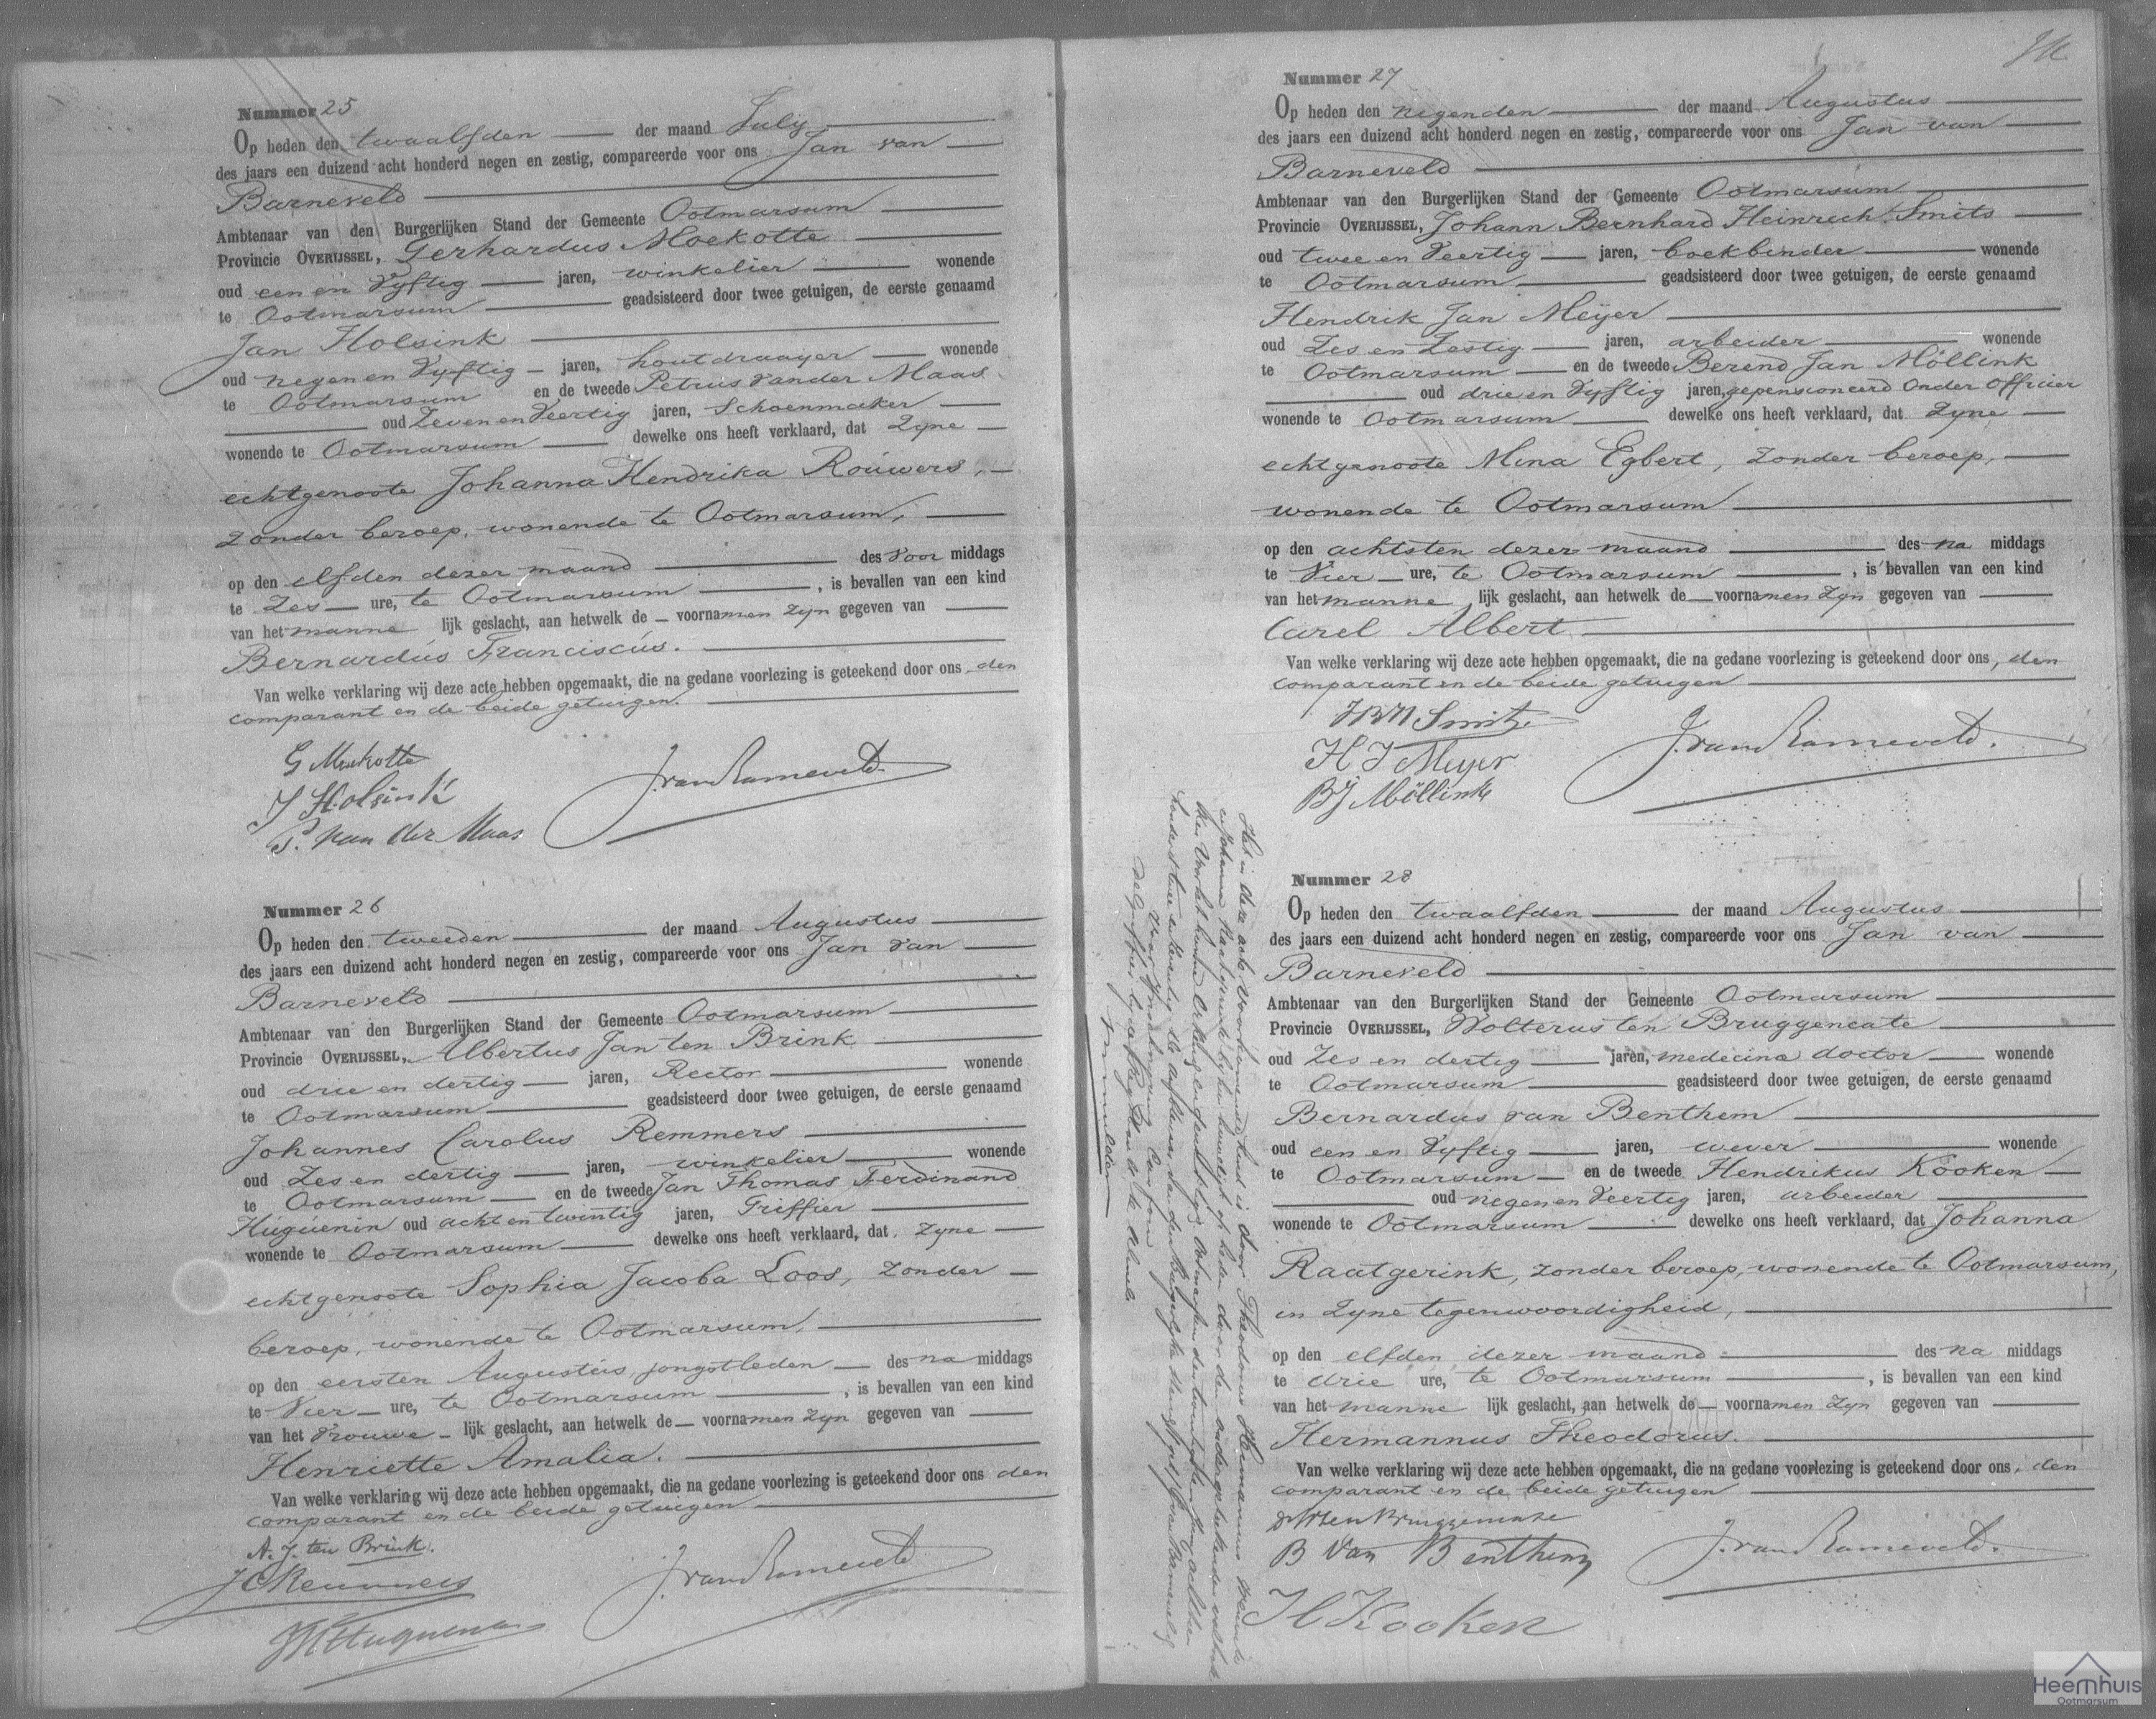 Nummer 25
Op heden den twaalfden der maand July
des jaars een duizend acht honderd negen en zestig, compareerde voor ons Jan van
Barneveld
Ambtenaar van den Burgerlijken Stand der Gemeente Ootmarsum
Provincie OVERIJSSEL, Gerhardus Moekotte
oud een en vyftig jaren, winkelier wonende
te Ootmarsum geadsisteerd door twee getuigen, de eerste genaamd
Jan Holsink
oud negen en vyftig jaren, houtdraayer wonende
te Ootmarsum en de tweede Petrus van der Maas
oud Zeven en Veertig jaren, Schoenmaker
wonende te Ootmarsum dewelke ons heeft verklaard, dat Zyne
echtgenoote Johanna Hendrika Rouwers,
zonder beroep, wonende te Ootmarsum,
op den elfden dezer maand des voor middags
te Zes ure, te Ootmarsum, is bevallen van een kind
van het manne lijk geslacht, aan hetwelk de voornamen zyn gegeven van
Bernardus Franciscus.
Van welke verklaring wij deze acte hebben opgemaakt, die na gedane voorlezing is geteekend door ons den
comparant en de beide getuigen.
G Moekotte
J Holsink
P. van der Maas
J. van Barneveld
Nummer 26
Op heden den tweeden der maand Augustus
des jaars een duizend acht honderd negen en zestig, compareerde voor ons Jan van
Barneveld
Ambtenaar van den Burgerlijken Stand der Gemeente Ootmarsum
Provincie OVERIJSSEL, Albertus Jan ten Brink
oud drie en dertig jaren, Rector wonende
te Ootmarsum geadsisteerd door twee getuigen, de eerste genaamd
Johannes Carolus Remmers
oud Zes en dertig jaren, winkelier wonende
te Ootmarsum en de tweede Jan Thomas Ferdinand
Huguenin oud acht en twintig jaren, Griffier
wonende te Ootmarsum dewelke ons heeft verklaard, dat Zyne
echtgenoote Sophia Jacoba Loos, zonder
beroep, wonende te Ootmarsum,
op den eersten Augustus jongstleden des na middags
te Vier ure, te Ootmarsum, is bevallen van een kind
van het Vrouwe lijk geslacht, aan hetwelk de voornamen zyn gegeven van
Henriette Amalia.
Van welke verklaring wij deze acte hebben opgemaakt, die na gedane voorlezing is geteekend door ons den
comparant en de beide getuigen
A. J. ten Brink.
J C Remmers
Huguenin
J. van Barneveld
Nummer 27
Op heden den negenden der maand Augustus
des jaars een duizend acht honderd negen en zestig, compareerde voor ons Jan van
Barneveld
Ambtenaar van den Burgerlijken Stand der Gemeente Ootmarsum
Provincie OVERIJSSEL, Johann Bernhard Heinrich Smits
oud twee en Veertig jaren, boekbinder wonende
te Ootmarsum geadsisteerd door twee getuigen, de eerste genaamd
Hendrik Jan Meyer
oud Zes en Zestig jaren, arbeider wonende
te Ootmarsum en de tweede Berend Jan Möllink
oud drie en Vyftig jaren, gepensioneerd Onder Officier
wonende te Ootmarsum dewelke ons heeft verklaard, dat Zyne
echtgenoote Mina Egbert, zonder beroep,
wonende te Ootmarsum
op den achtsten dezer maand des na middags
te Vier ure, te Ootmarsum, is bevallen van een kind
van het manne lijk geslacht, aan hetwelk de voornamen zyn gegeven van
Carel Albert
Van welke verklaring wij deze acte hebben opgemaakt, die na gedane voorlezing is geteekend door ons, den
comparant en de beide getuigen
JBH Smits
H J Meyer
BJ Möllink
J. van Barneveld.
Nummer 28
Op heden den twaalfden der maand Augustus
des jaars een duizend acht honderd negen en zestig, compareerde voor ons Jan van
Barneveld
Ambtenaar van den Burgerlijken Stand der Gemeente Ootmarsum
Provincie OVERIJSSEL, Wolterus ten Bruggencate
oud Zes en dertig jaren, medecina doctor wonende
te Ootmarsum geadsisteerd door twee getuigen, de eerste genaamd
Bernardus van Benthem
oud een en Vyftig jaren, wever wonende
te Ootmarsum en de tweede Hendrikus Kooken
oud negen en Veertig jaren, arbeider
wonende te Ootmarsum dewelke ons heeft verklaard, dat Johanna
Raatgerink, zonder beroep, wonende te Ootmarsum,
in Zyne tegenwoordigheid,
op den elfden dezer maand des na middags
te drie ure, te Ootmarsum, is bevallen van een kind
van het manne lijk geslacht, aan hetwelk de voornamen zyn gegeven van
Hermannus Theodorus.
Van welke verklaring wij deze acte hebben opgemaakt, die na gedane voorlezing is geteekend door ons, den
comparant en de beide getuigen
ten Bruggencate
B van Benthem
H Kooken
J. van Barneveld.
Het in deze acte voorkomende kind is door Theodorus Hermannus
en Johanna Raatgerink bij hun huwelijk op heden door den ondergeteekende
voor het hunne erkend
Heemhuis
Ootmarsum